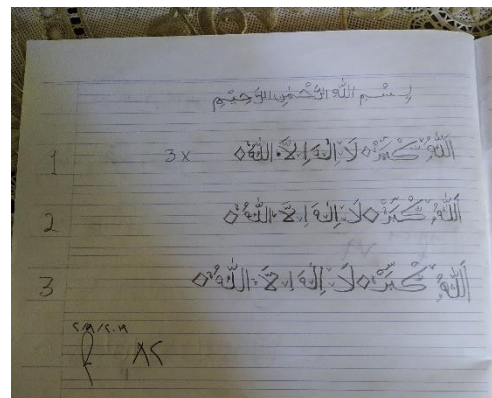 بِسْمِ اللهِ الرَّحْمٰنِ الرَّحِيْمِ
1 3x اَللّٰهُ كْبَرُ◇ لَا اِلٰهَ اِلَّا اللّٰهُ◇
2 اَللّٰهُ كْبَرُ◇ لَا اِلٰهَ اِلَّا اللّٰهُ◇
3 اَللّٰهُ كْبَرُ◇ لَا اِلٰهَ اِلَّا اللّٰهُ◇
٨٢